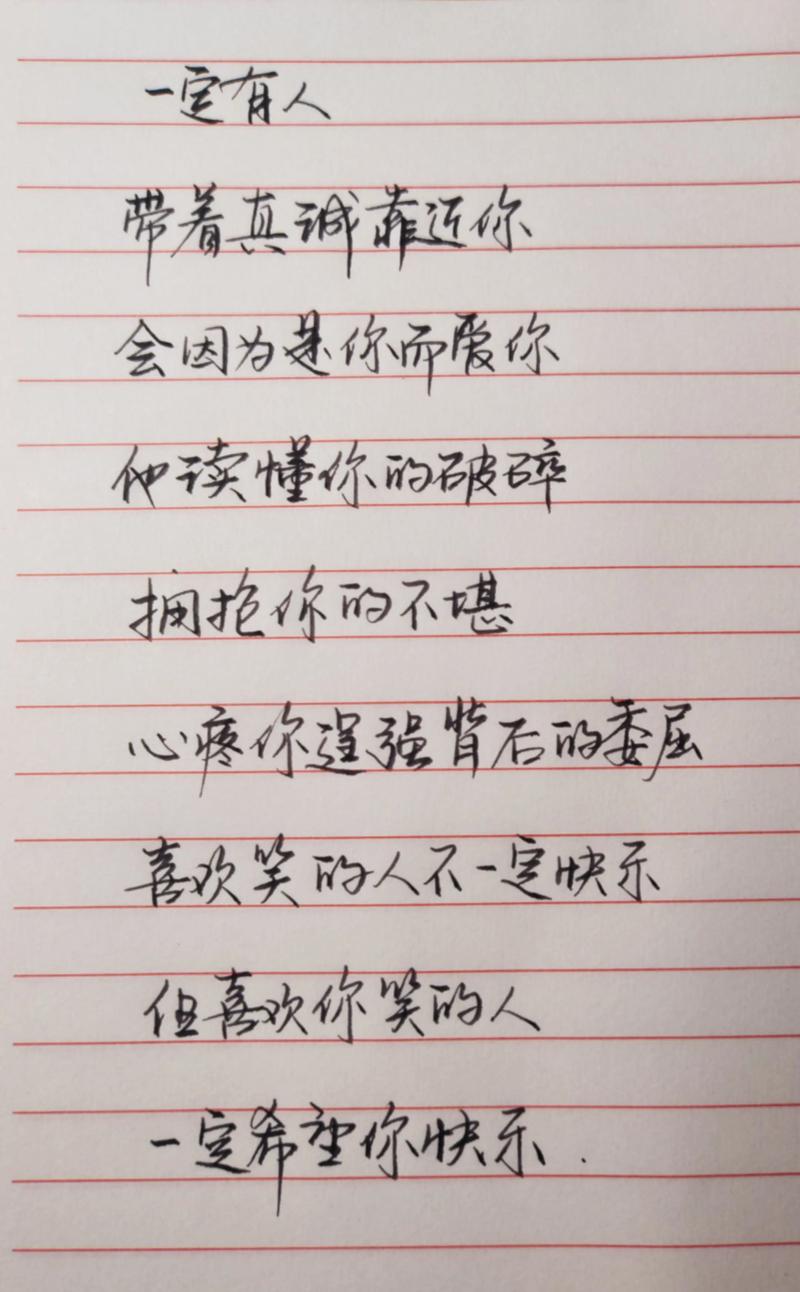 一定有人
带着真诚靠近你
会因为是你而爱你
他读懂你的破碎
拥抱你的不堪
心疼你逞强背后的委屈
喜欢笑的人不一定快乐
但喜欢你笑的人
一定希望你快乐.